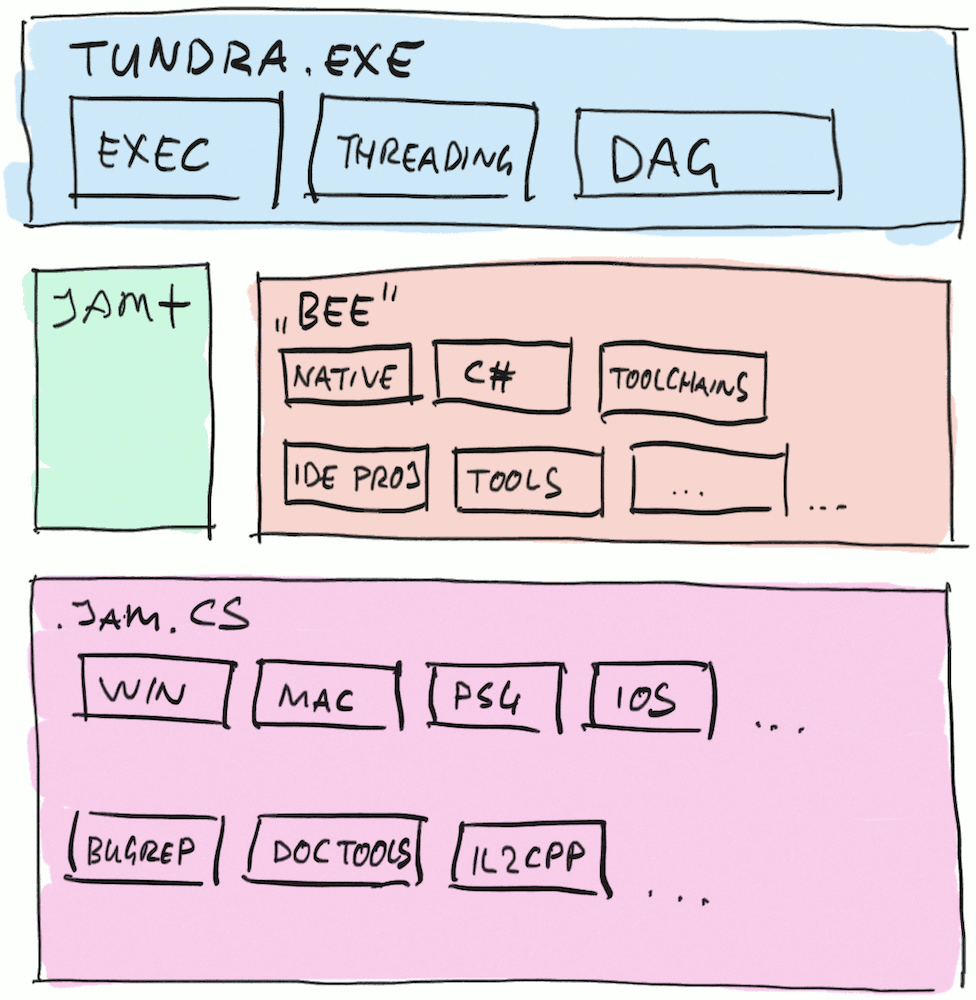 TUNDRA.EXE
EXEC THREADING DAG
JAM+
„BEE"
NATIVE C# TOOLCHAINS
IDE PROJ TOOLS ... ...
.JAM.CS
WIN MAC PS4 IOS ...
BUGREP DOCTOOLS IL2CPP ...